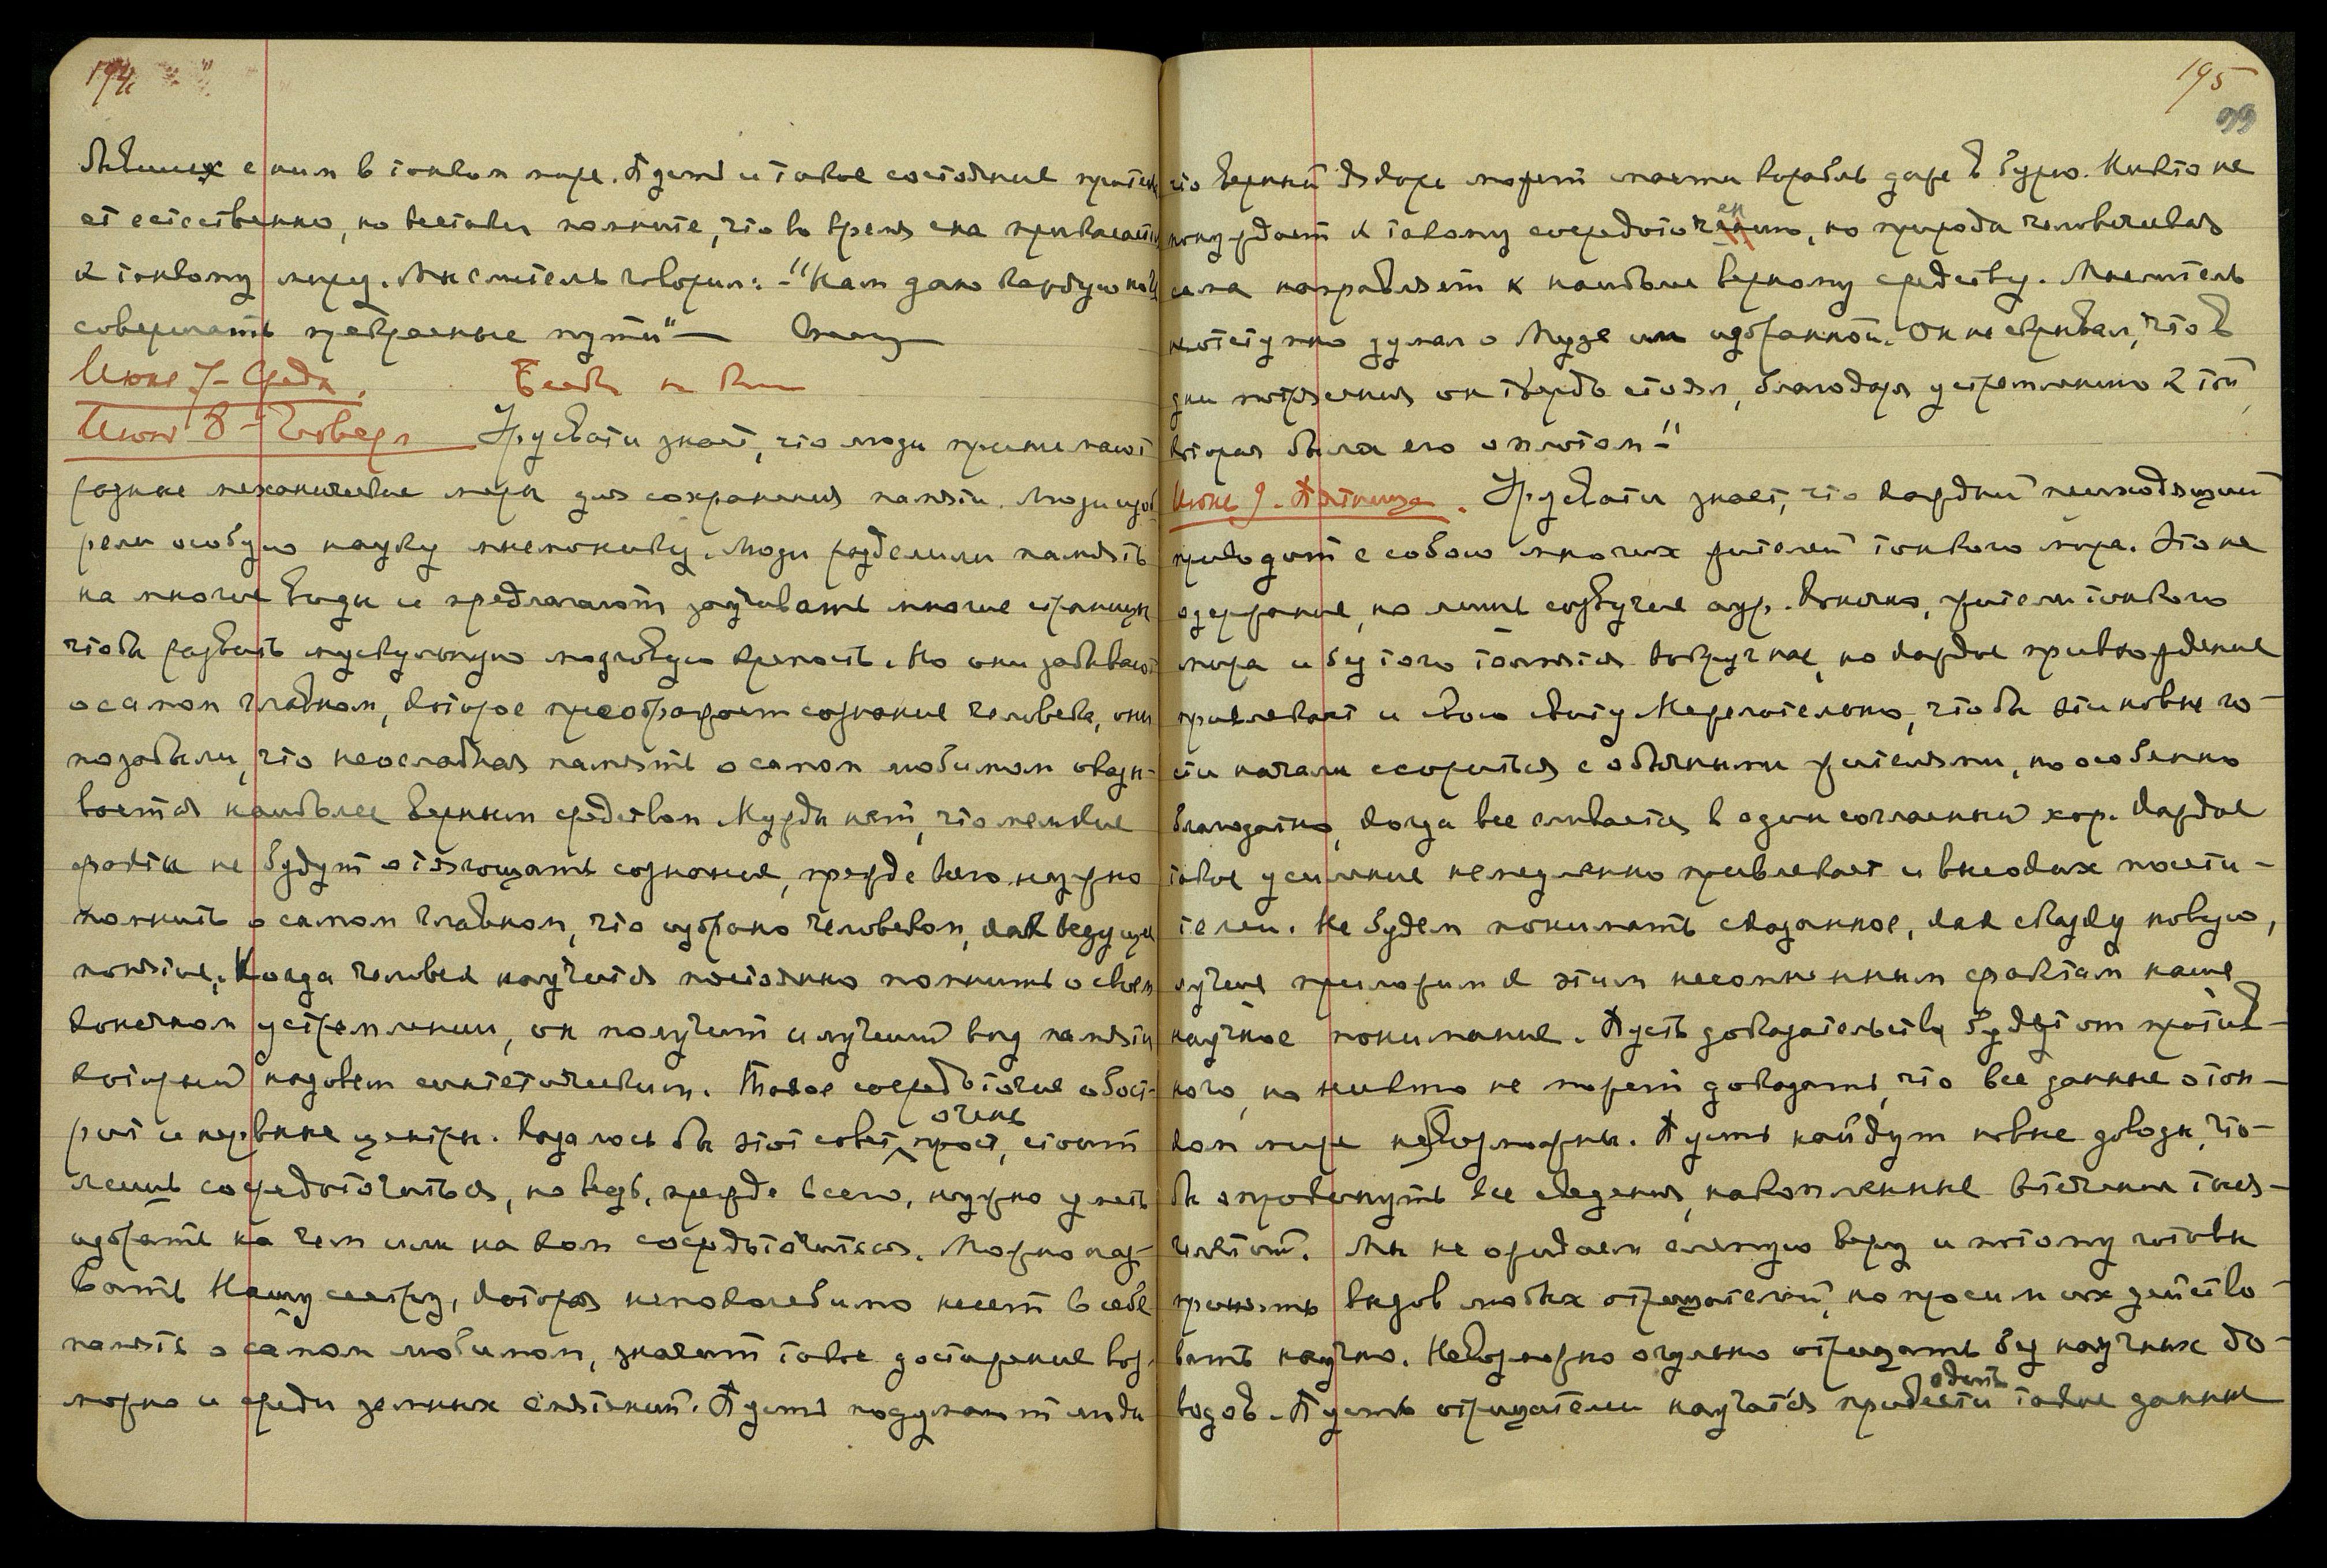 194
бывших с ним в тонком мире. Пусть и такое состояние протек
ет естественно, но все-таки помните, что во время сна прикасаетесь
к тонкому миру. Мыслитель говорил: -"Нам дано каждую ночь
совершать прекрасные пути"-
Июнь 7 - Среда.
Июнь 8 - Четверг Урусвати знает, что люди принимают
разные механические меры для сохранения памяти. Люди изоб
рели особую науку мнемонику. Люди разделили память
на многие виды и предлагают заучивать многие страницы
чтобы развить мускульную мозговую крепость. Но они забывают
о самом главном, которое преображает сознание человека, они
позабыли, что неослабная память о самом любимом оказы-
вается наиболее верным средством. Нужды нет, что мелкие
факты не будут отягощать сознание, прежде всего нужно
помнить о самом главном, что избрано человеком, как ведущее
понятие. Когда человек научится постоянно помнить о своем
конечном устремлении, он получит и лучший вид памяти
который назовем синтетическим. Такое сосредоточие обост-
рит и нервные центры. Казалось бы этот совет очень прост, стоит
лишь сосредоточиться, но ведь, прежде всего, нужно уметь
избрать на чем или на ком сосредоточиться. Можно наз-
вать Нашу сестру, которая непоколебимо несет в себе
память о самом любимом, значит такое достижение воз-
можно и среди земных смятений. Пусть подумают люди
195
99
что верный якорь может спасти корабль даже в бурю. Никто не
понуждает к такому сосредоточению, но природа человеческая
сама направляет к наиболее верному средству. Мыслитель
неотступно думал о Музе им избранной. Он не скрывал, что в
дни потрясения он твердо стоял, благодаря устремлению к той,
которая была его оплотом-"
Июнь 9 - Пятница. Урусвати знает, что каждый приходящий
приводит с собою многих жителей тонкого мира. Это не
одержание, но лишь созвучие аур. Конечно, жители тонкого
мира и без того толпятся вокруг нас, но каждое привхождение
привлекает и свою свиту. Нежелательно, чтобы эти новые го-
сти начали ссориться с обычными жителями, но особенно
благодатно, когда все сливается в один согласный хор. Каждое
такое усиление немедленно привлекает и высоких посети-
телей. Не будем понимать сказанное, как сказку новую,
лучше приложим к этим несомненным фактам наше
научное понимание. Пусть доказательства будут от против-
ного, но никто не может доказать, что все данные о тон-
ком мире невозможны. Пусть найдут новые доводы, что-
бы опровергнуть все сведения, накопленные в течении тыся-
челетий. Мы не ожидаем слепую веру и потому готовы
принять вызов любых отрицателей, но просим их действо-
вать научно. Невозможно огульно отрицать без научных до-
водов. Пусть отрицатели научатся привести такие данные